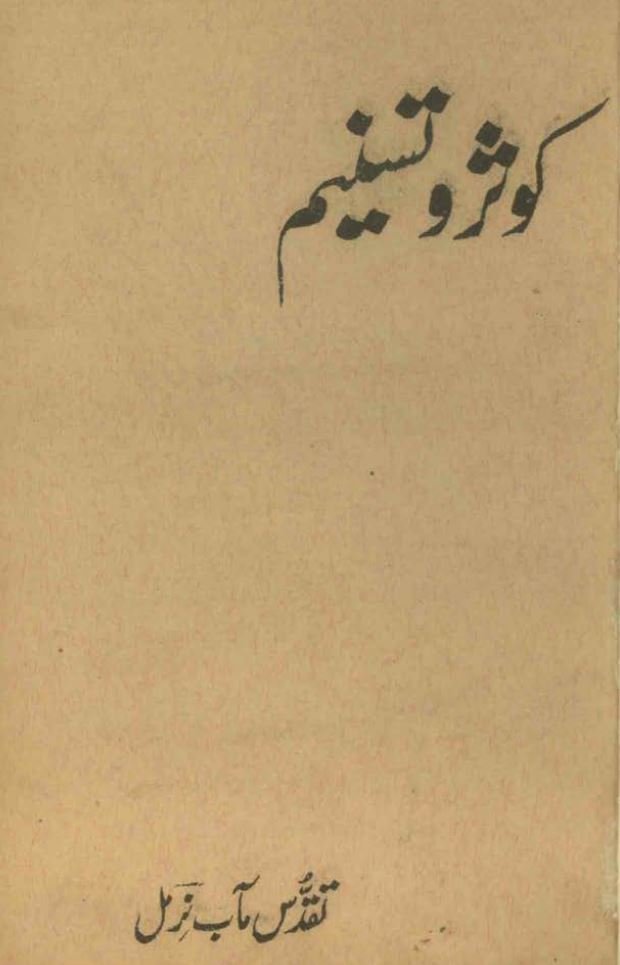 کوثر و تسنیم
تقدُّس مآب نِرَمل